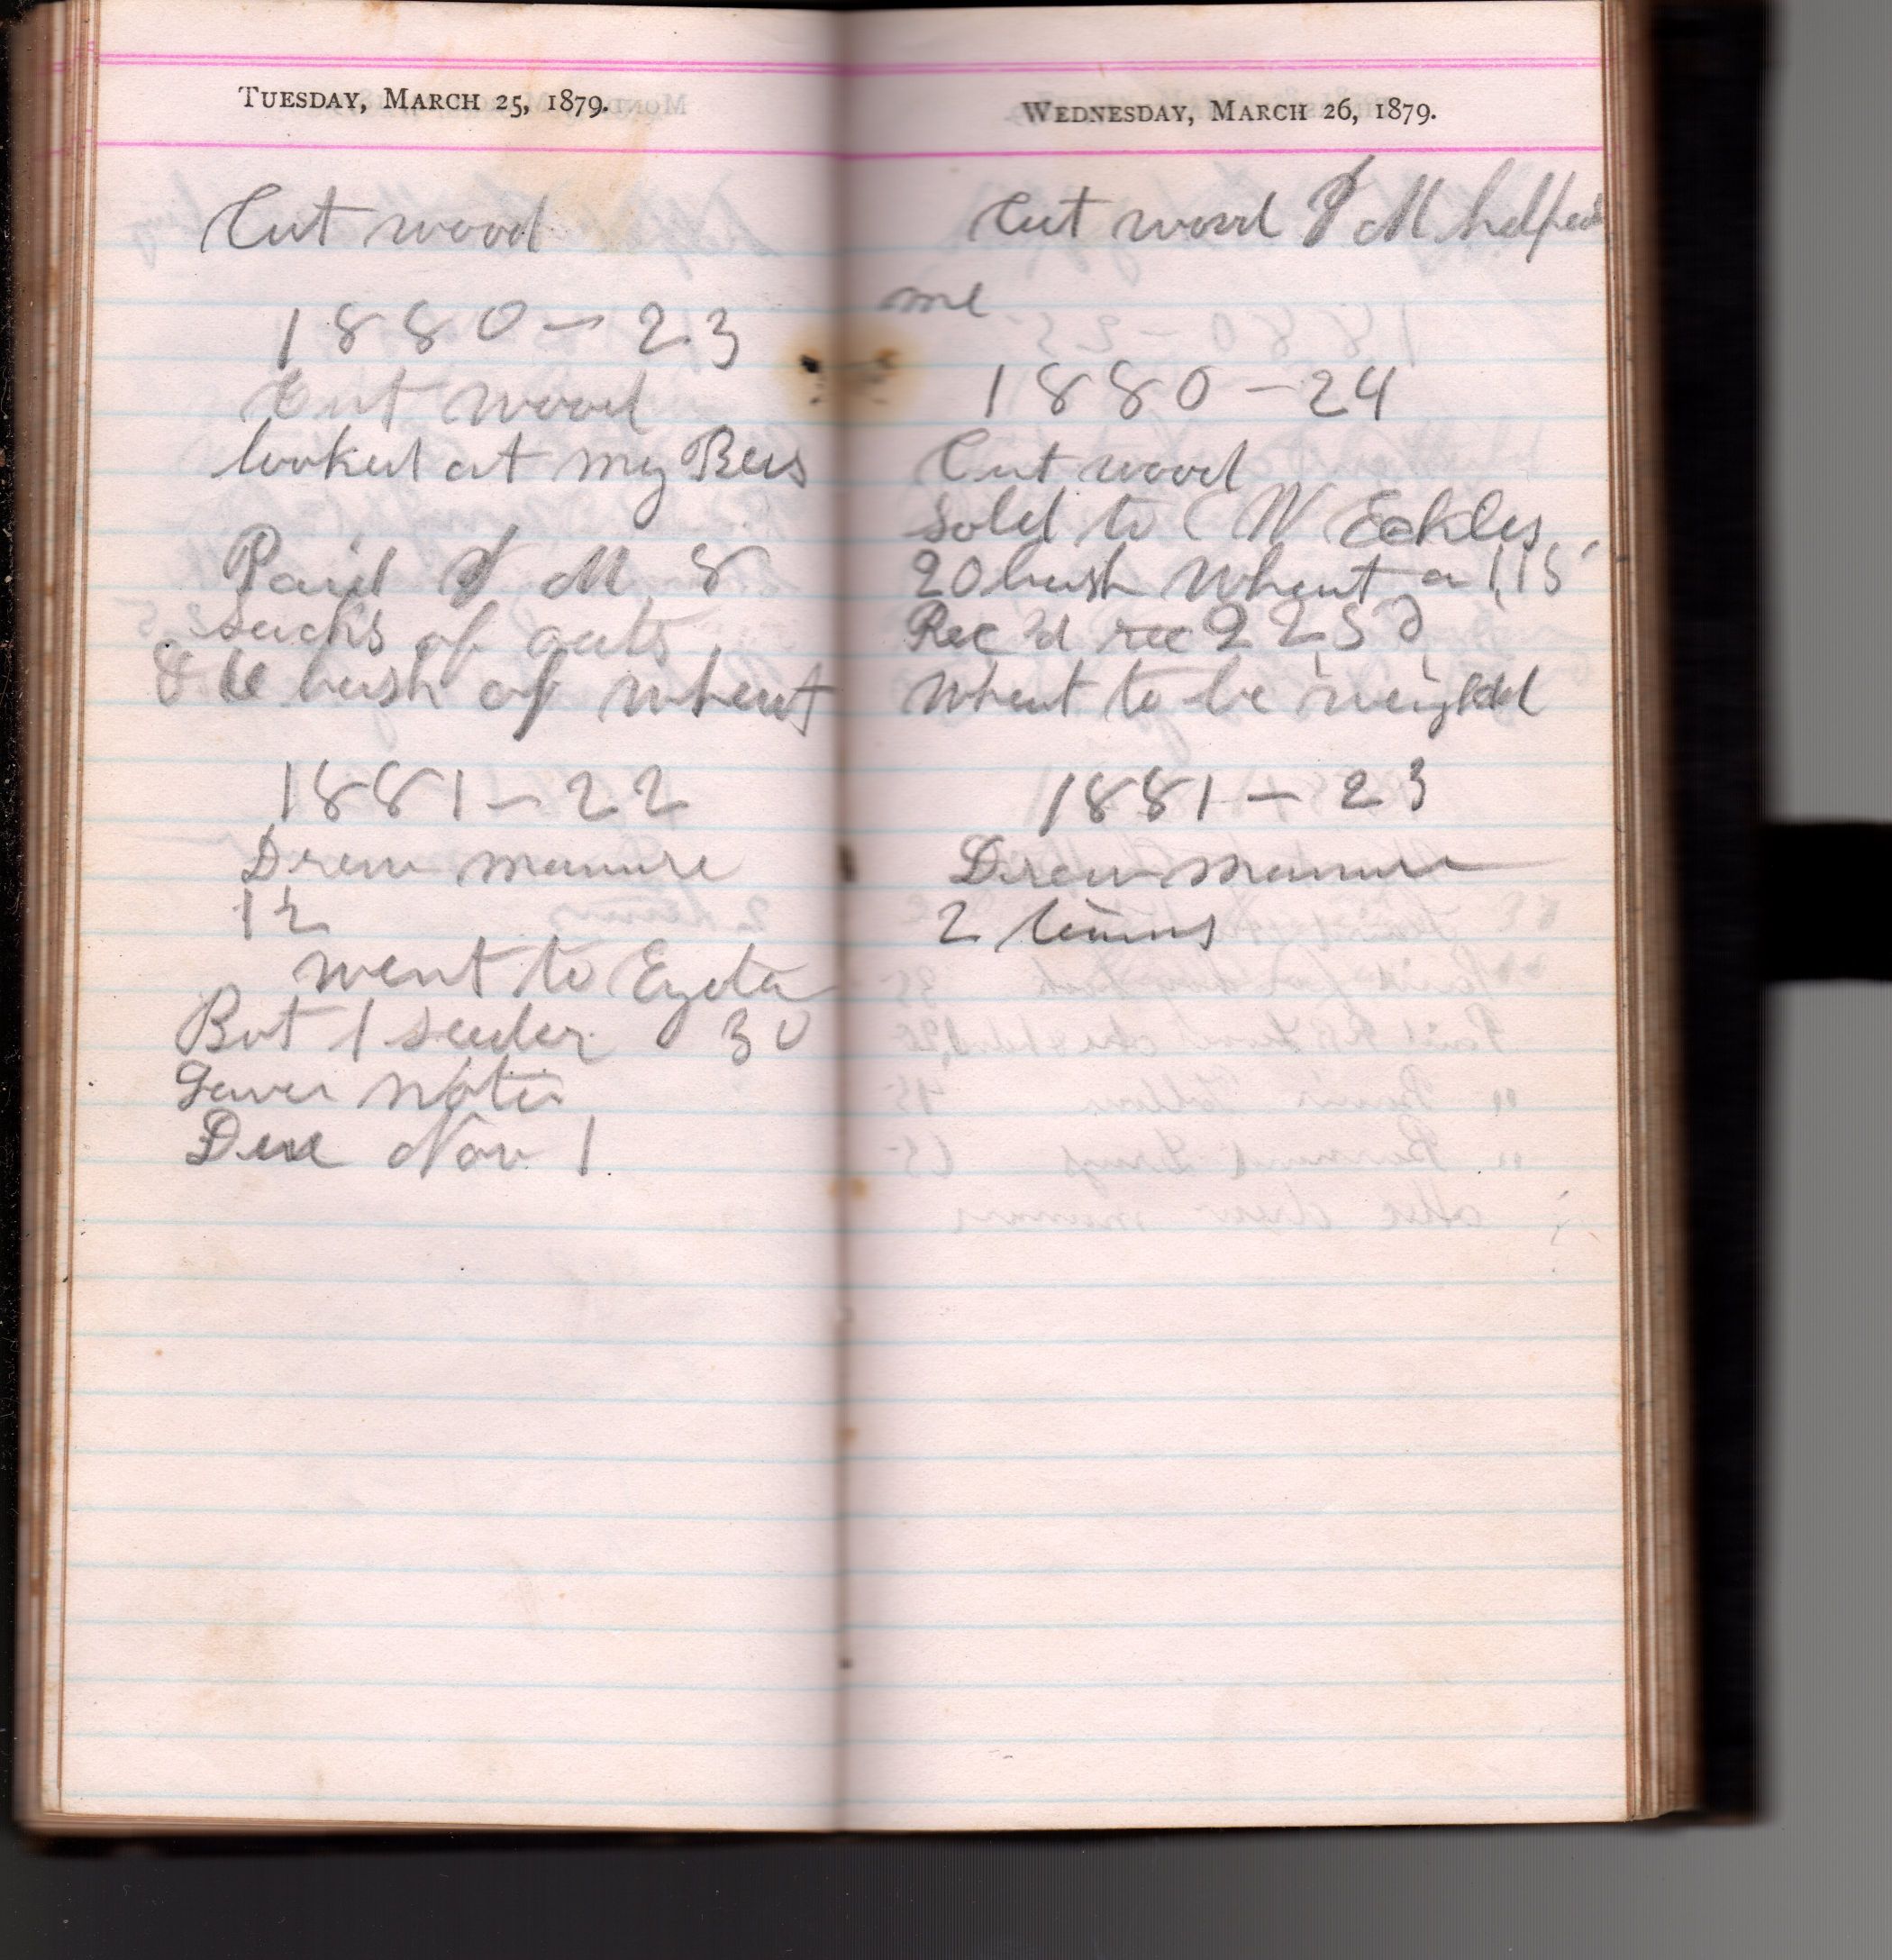 TUESDAY, MARCH 25, 1879.
Cut wood
1880-23
Cut wood
looked at my Bees
Paid J M 8
sacks of oats
& bush of wheat
1881-22
Drew manure
12
went to Eyota
But 1 seeder 30
Gave note
Due Nov 1
WEDNESDAY, MARCH 26, 1879.
Cut wood J M helped
me
1880-24
Cut wood
Sold to C W Eckles
20 bush wheat a 1,15
Rec'd
wheat to be weighed
1881-23
Drew manure
2 teams